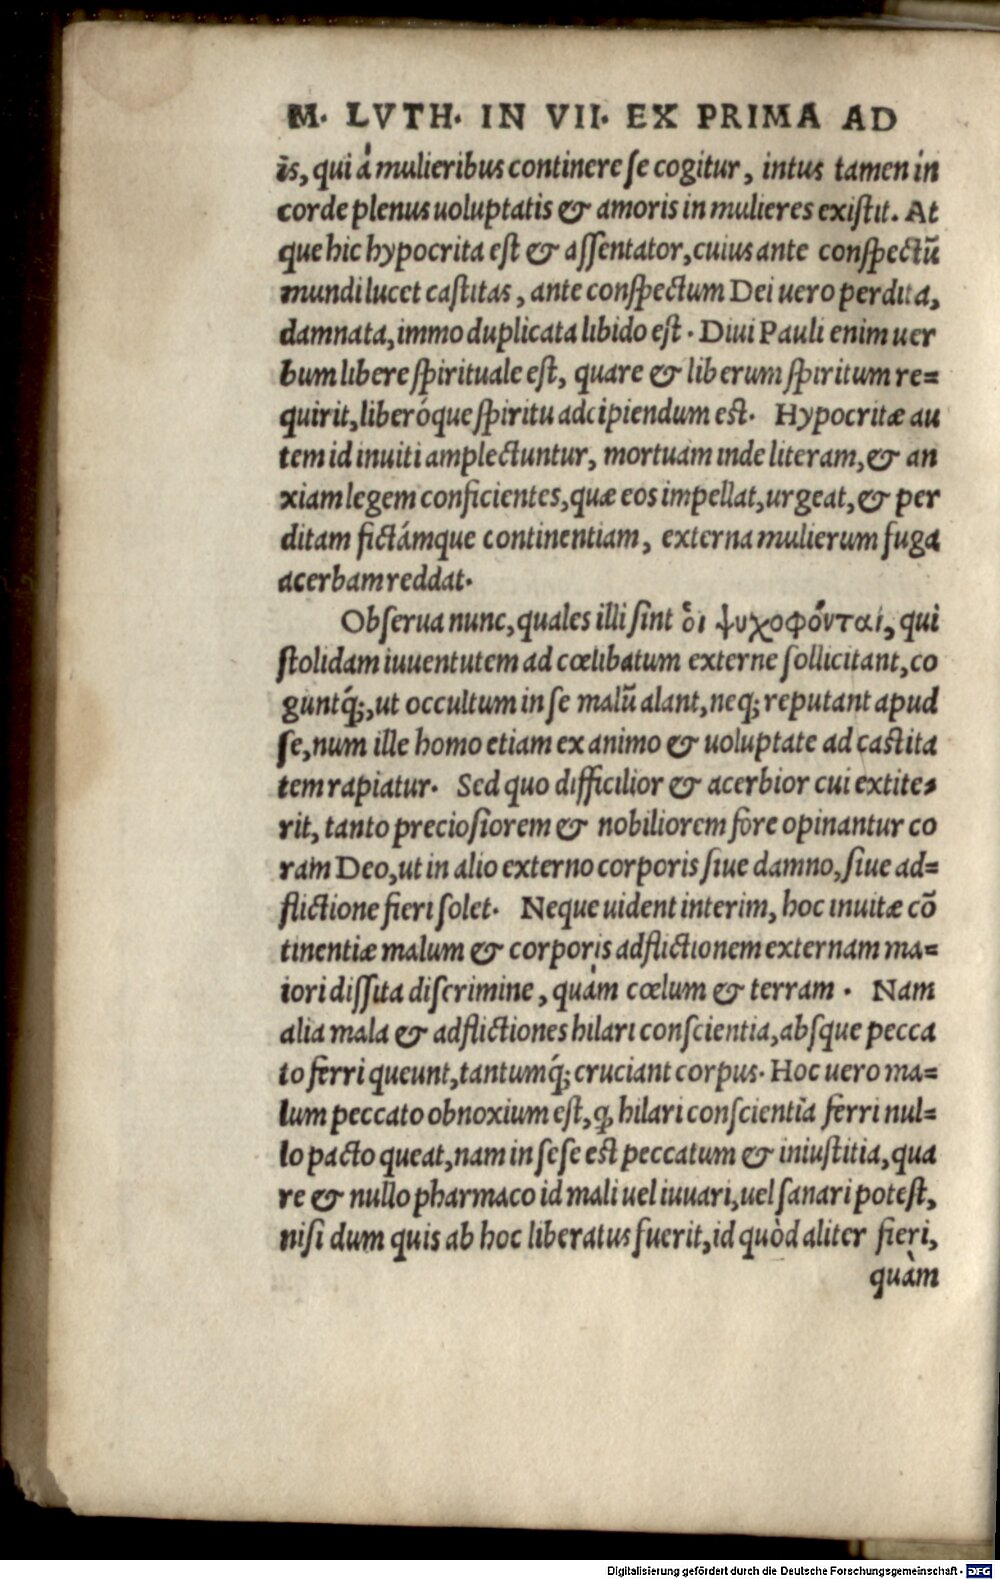 M. LVTH. IN VII. EX PRIMA AD
is, qui à mulieribus continere se cogitur, intus tamen in
corde plenus uoluptatis & amoris in mulieres existit. At
que hic hypocrita est & assentator, cuius ante conspectū
mundi lucet castitas, ante conspectum Dei uero perdita,
damnata, immo duplicata libido est. Diui Pauli enim uer
bum libere spirituale est, quare & liberum spiritum re=
quirit, liberóque spiritu adcipiendum est. Hypocritæ au
tem id inuiti amplectuntur, mortuam inde literam, & an
xiam legem conficientes, quæ eos impellat, urgeat, & per
ditam fictámque continentiam, externa mulierum fuga
acerbam reddat.
Obserua nunc, quales illi sint ὃι ψυχοφόνται, qui
stolidam iuuentutem ad cœlibatum externe sollicitant, co
guntq́;, ut occultum in se malū alant, neq; reputant apud
se, num ille homo etiam ex animo & uoluptate ad castita
tem rapiatur. Sed quo difficilior & acerbior cui extite=
rit, tanto preciosiorem & nobiliorem fore opinantur co
ram Deo, ut in alio externo corporis siue damno, siue ad=
flictione fieri solet. Neque uident interim, hoc inuitæ cō
tinentiæ malum & corporis adflictionem externam ma=
iori dissita discrimine, quàm cœlum & terram. Nam
alia mala & adflictiones hilari conscientia, absque pecca
to ferri queunt, tantumq́; cruciant corpus. Hoc uero ma=
lum peccato obnoxium est, ꝙ hilari conscientia ferri nul=
lo pacto queat, nam in sese est peccatum & iniustitia, qua
re & nullo pharmaco id mali uel iuuari, uel sanari potest,
nisi dum quis ab hoc liberatus fuerit, id quòd aliter fieri,
quàm
Digitalisierung gefördert durch die Deutsche Forschungsgemeinschaft - DFG